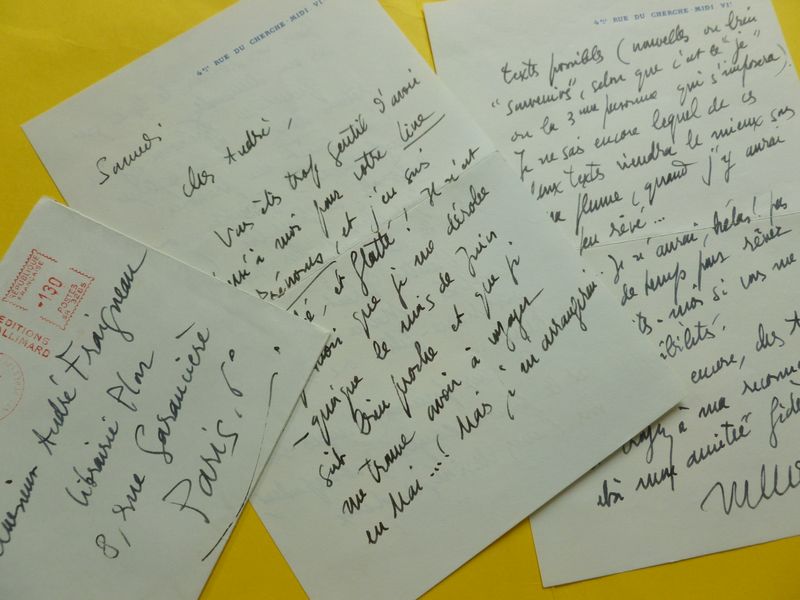 4BIS RUE DU CHERCHE-MIDI VIE
Samedi
Cher André,
Vous êtes trop gentil d'avoir
à moi pour votre livre
Prénoms, et j'en suis
et flatté! Il n'est
que je me dérobe
- quoique le mois de Juin
soit bien proche et que je
me trouve avoir à voyager
en Mai...! Mais je m'arrangerai
4BIS RUE DU CHERCHE-MIDI VIE
textes possibles (nouvelles ou bien
"souvenirs", selon que c'est le "je"
ou la 3me personne qui s'imposera).
Je ne sais encore lequel de ces
deux textes viendra le mieux sous
ma plume, quand j'y aurai
un peu rêvé...
Je n'aurai, hélas! pas
de temps pour rêver
-moi si vous me
encore, cher
à ma reconn
et à mon amitié fidèle
RÉPUBLIQUE
FRANÇAISE
0130
POSTES
EDITIONS
GALLIMARD
Monsieur André Fraigneau
Librairie Plon
8, rue Garancière
Paris. 6°